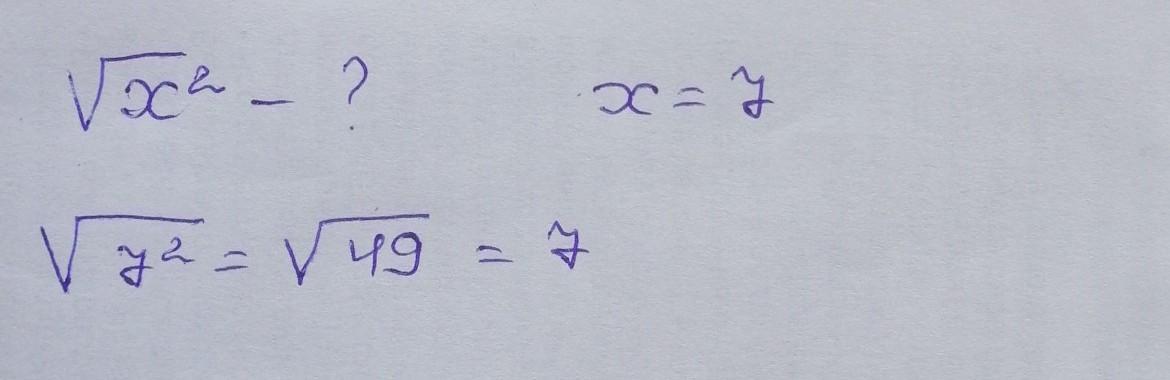 √x² – ? x = 7
√7² = √49 = 7